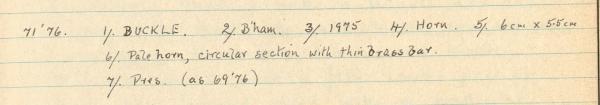 71'76. 1/. BUCKLE. 2/. B'ham. 3/. 1975 4/. Horn. 5/. 6cm x 5.5cm
6/. Pale horn, circular section with thin Brass Bar.
7/. Pres. (as 69'76)